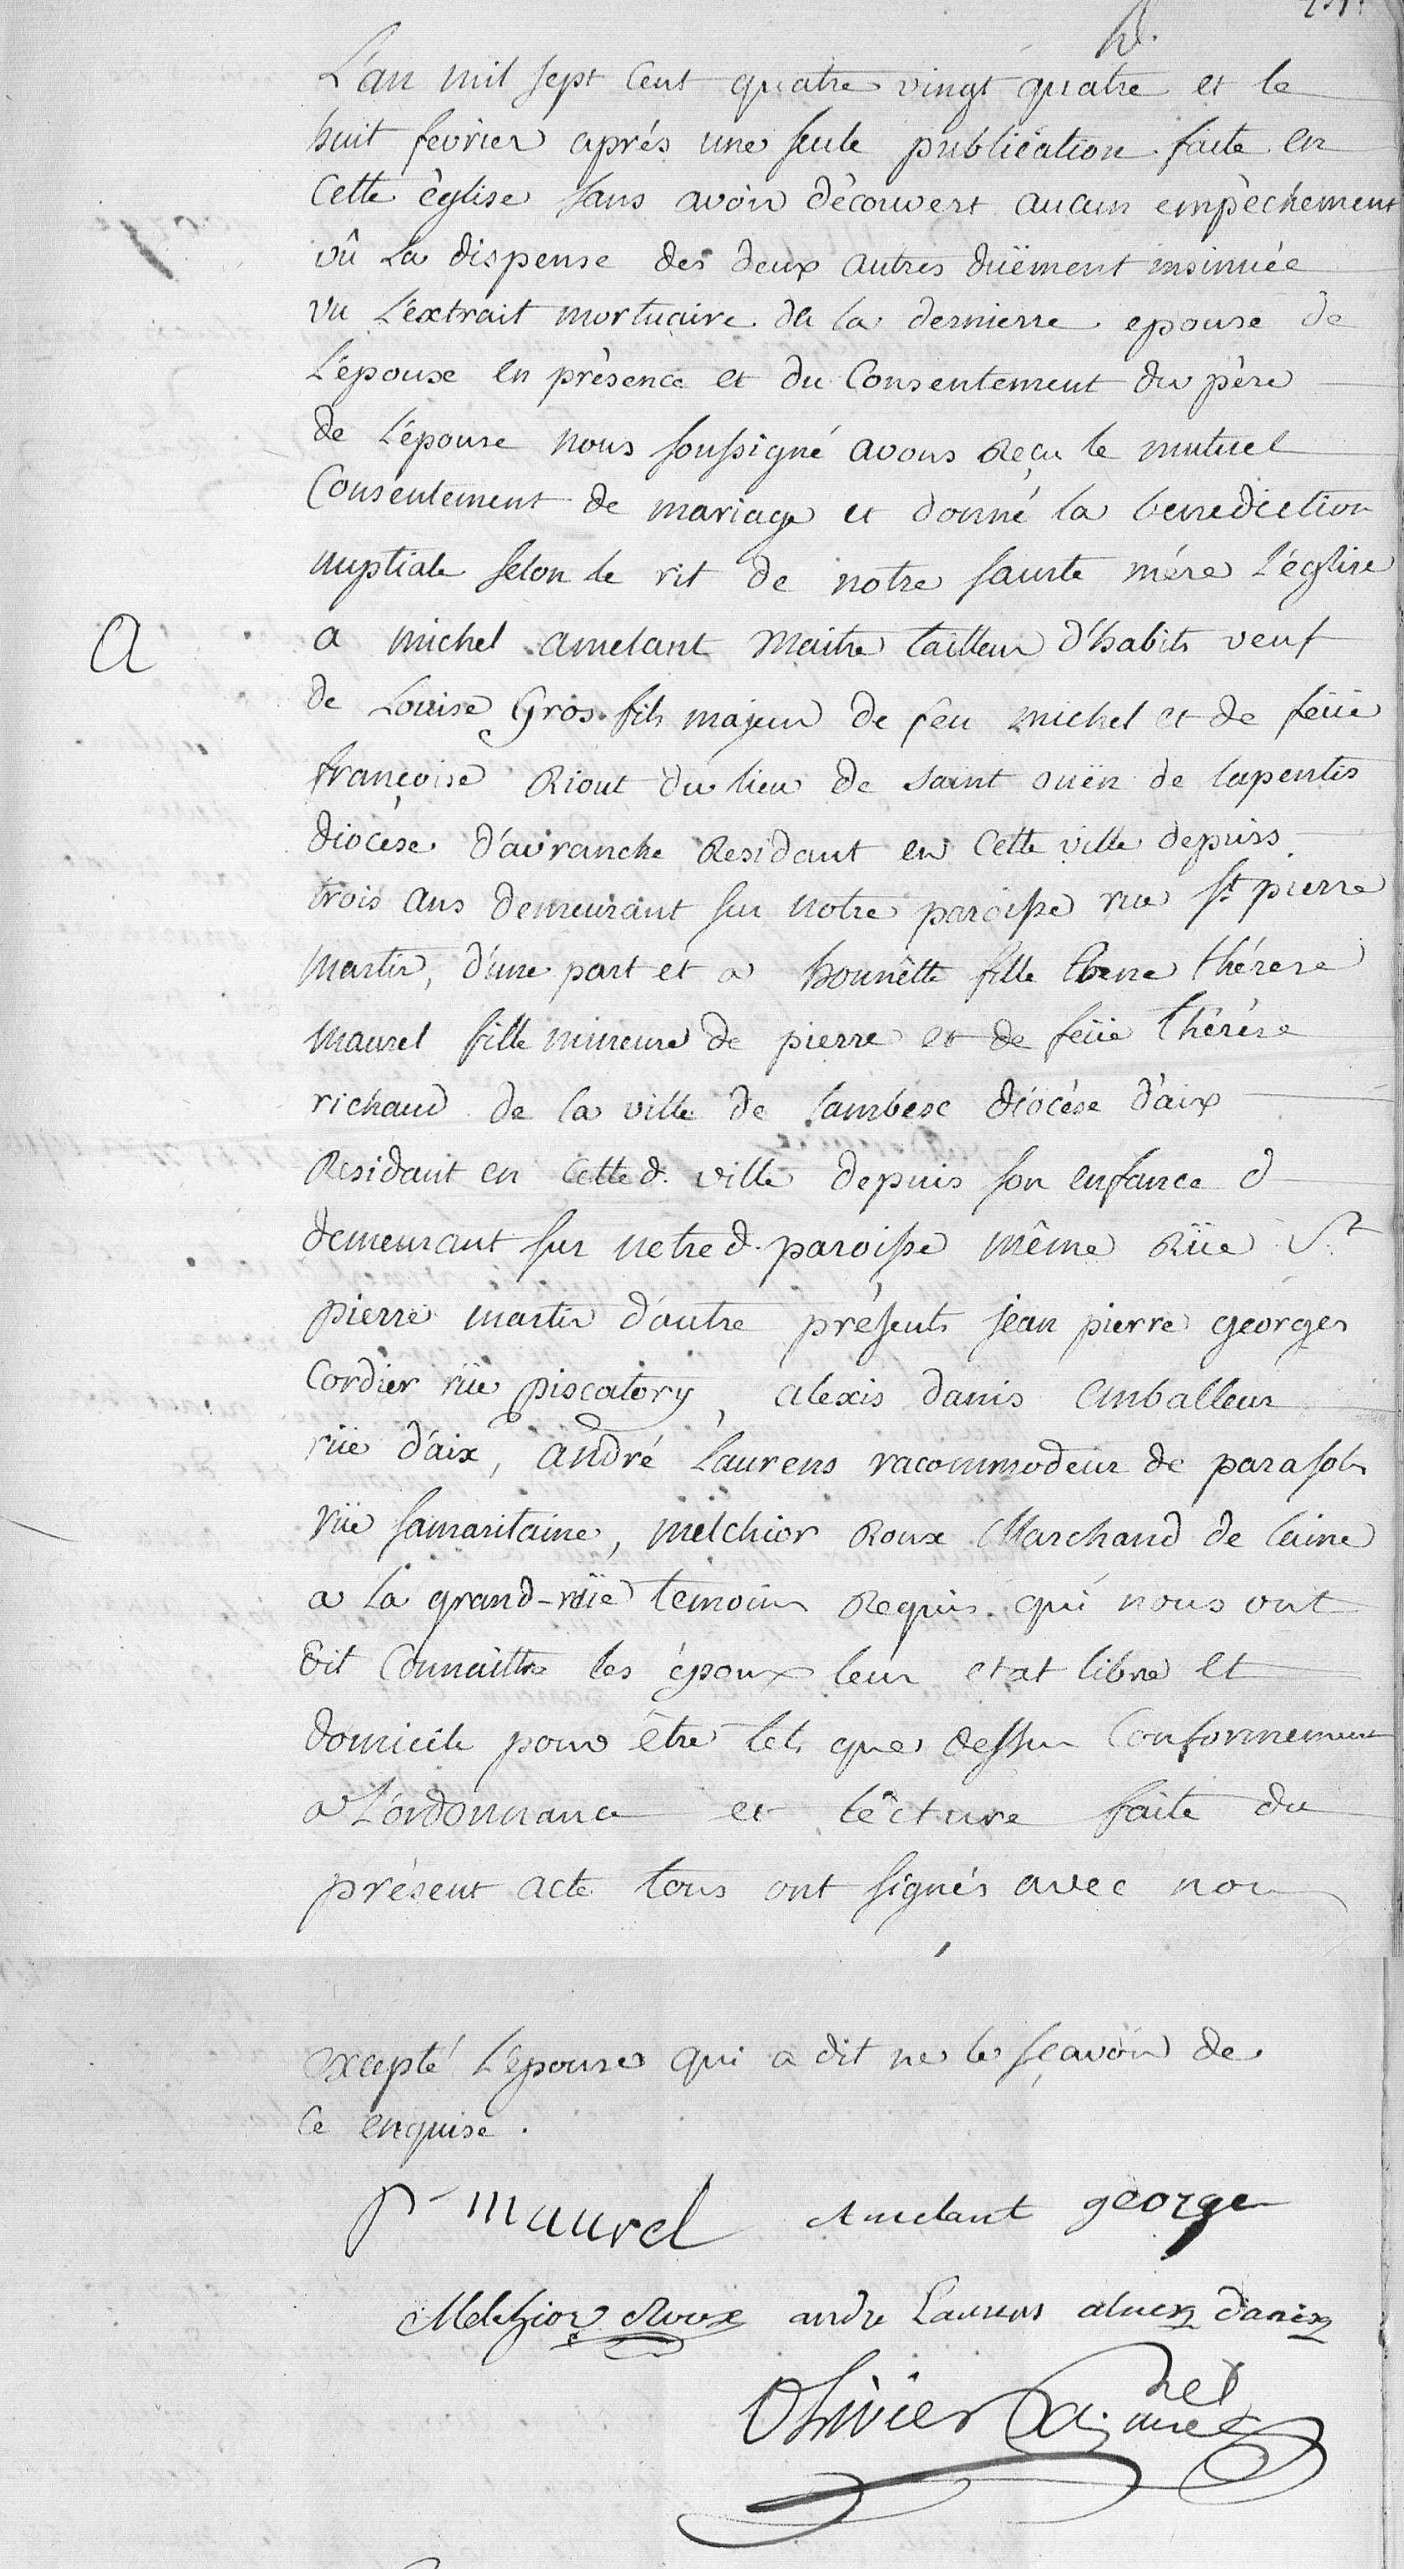 L'an mil sept Cent quatre vingt quatre et le
huit fevrier aprés une seule publication faite en
Cette église sans avoir découvert aucun empêchement
vû La dispense des deux autres düement insinuée
vu L'extrait mortuaire de la dernierre epouse de
L'époux en présence et du Consentement du père
de L'épouse nous soussigné avons Reçu le mutuel
Consentement de mariage et donné la benediction
nuptiale selon le rit de notre sainte mére L'église
a
a michel amelant Maitre tailleur d'habits veuf
de Louise Gros fils majeur de feu michel et de feüe
françoise Riout du lieu de saint oüen de lapentis
diocése d'avranche Residant en Cette ville depuis
trois ans demeurant sur notre paroisse rue St pierre
martir, d'une part et a honnette fille thérese
maurel fille mineure de pierre et de feüe thérése
richaud de la ville de lambesc diocése d'aix
Residant en Cette d. ville depuis son enfance d
demeurant sur notre d. paroisse même Rüe St
pierre martir d'autre présents jean pierre georges
Cordier rüe piscatory, alexis danis emballeur
rüe d'aix, andré Laurens racommodeur de parasols
rüe samaritaine, melchior Roux Marchand de laine
a la grand-rüe temoins Requis qui nous ont
dit Connaitre les époux leur etat libre et
domicile pour être tels que dessus Conformement
a L'ordonnance et lêcture faite du
présent acte tous ont signés avec nous
excepté L'epouse qui a dit ne le sçavoir de
Ce enquise.
P maurel Amelant george
Melchior Roux andre Laurens danis
Olivier